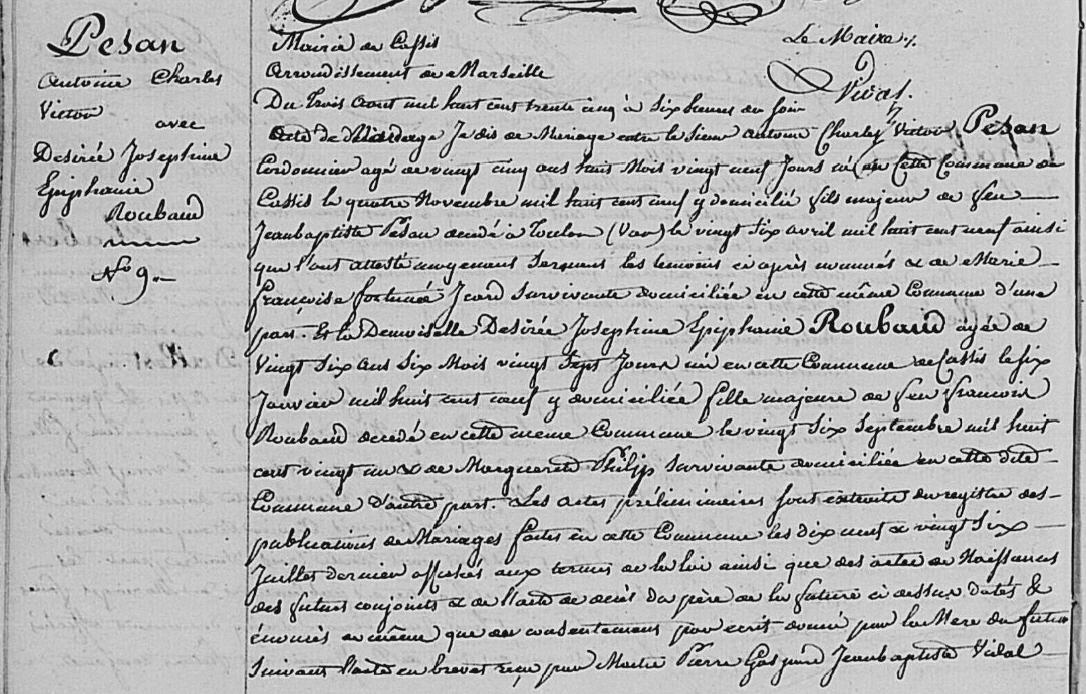 Pesan
Antoine Charles
Victor
avec
Desirée Josephine
Epiphanie
Roubaud
No 9.
Le Maire
Vidal.
Mairie de Cassis
Arrondissement de Marseille
Du trois aout mil huit cent trente cinq à six heures du soir
Acte de Mariage Je dis de Mariage entre le sieur Antoine Charles Victor Pesan
Cordonnier agé de vingt cinq ans huit Mois vingt neuf Jours né en Cette Commune de
Cassis le quatre Novembre mil huit cent neuf y domicilié fils majeur de feu
Jeanbaptiste Pesan decedé à Toulon (Var) le vingt six avril mil huit cent neuf ainsi
que l'ont attesté moyennant serment les temoins ci après nommés & de Marie
françoise fortunée Jcard survivante domiciliée en cette même Commune d'une
part. Et la Demoiselle Desirée Josephine Epiphanie Roubaud agée de
Vingt Six ans Six Mois vingt sept Jours née en cette Commune de Cassis le six
Janvier mil huit cent neuf y domiciliée fille majeure de feu françois
Roubaud decedé en cette meme Commune le vingt Six Septembre mil huit
cent vingt un & de Marguerite Philip survivante domiciliée en cette dite
Commune D'autre part. Les actes préliminaires sont extraits du registre des
publications de Mariages faites en cette Commune les dix neuf & vingt Six
Juillet dernier affichés aux termes de la loi ainsi que des actes de Naissances
des futurs conjoints & de l'acte de décès du père de la future ci dessus datés &
énoncés de même que du consentement par ecrit donné par la Mere du futur
suivant l'acte en brevet reçu par Maitre Pierre Gaspard Jeanbaptiste Vidal